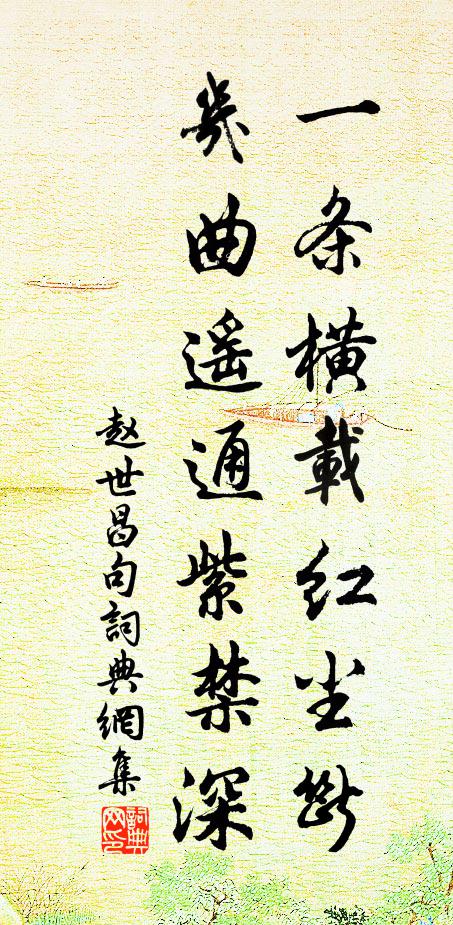 一条横載红尘断
幾曲遥通紫禁深
赵世昌句詞典網集
詞典网印